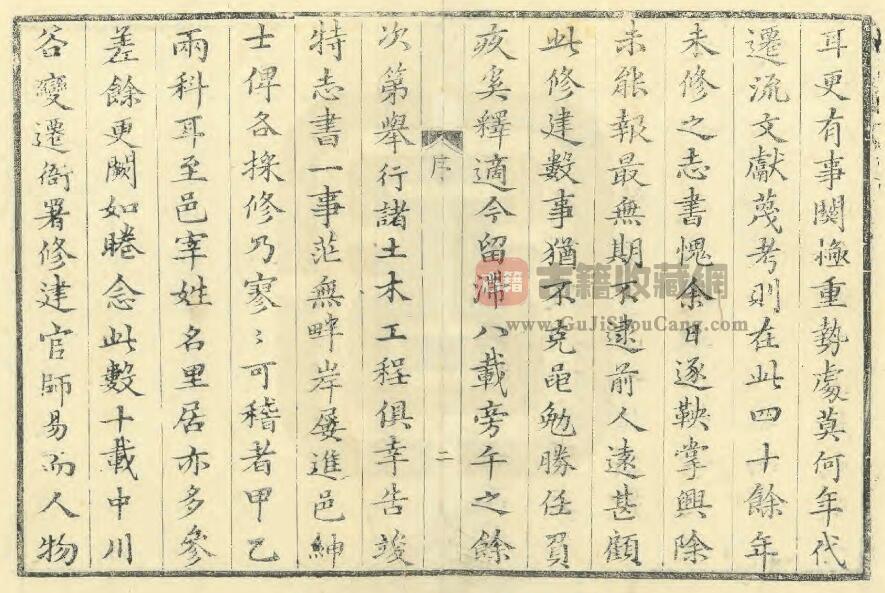 耳更有事關極重勢處莫何年代
遷流文獻蔑考則在此四十餘年
未修之志書愧余日逐鞅掌興除
未能報最無期不逮前人遠甚顧
此修建數事猶不克黽勉勝任負
疚奚釋適今留滯八載旁午之餘
次第舉行諸土木工程俱幸告竣
特志書一事茫無畔岸屢進邑紳
士俾各採修乃寥〻可稽者甲乙
兩科耳至邑宰姓名里居亦多參
差餘更闕如睠念此數十載中川
谷變遷衙署修建官師易而人物
序
二
古籍收藏網
www.GuJiShouCang.com